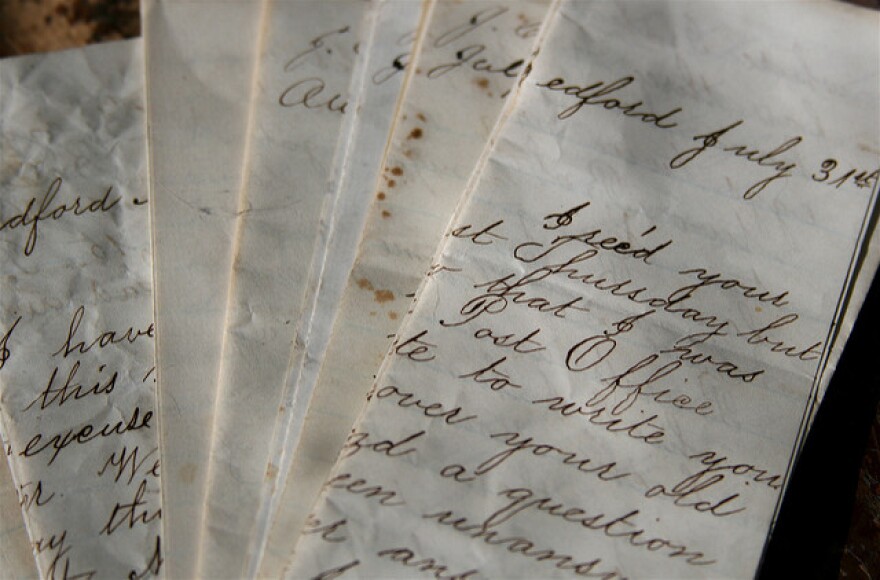 dford
I have
this
excuse
We
ay thi
J.
Au
J.
July
edford July 31st
I rec'd your
st Thursday but
that I was
Post Office
te to write you
over your old
nd a question
een unansw
er ans